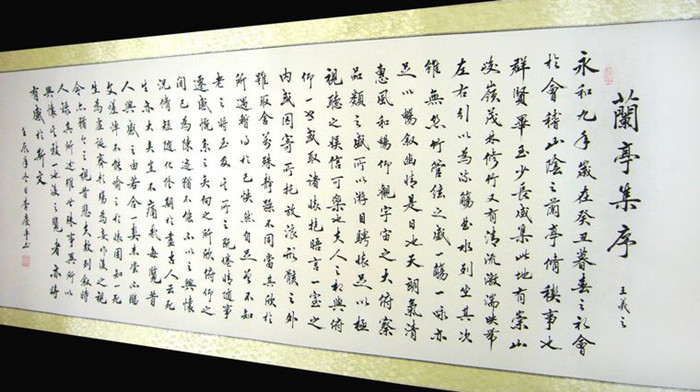 蘭亭集序
王羲之
永和九年歲在癸丑暮春之初會
於會稽山陰之蘭亭脩稧事也
群賢畢至少長咸集此地有崇山
峻嶺茂林修竹又有清流激湍映帶
左右引以為流觴曲水列坐其次
雖無絲竹管弦之盛一觴一詠亦
足以暢敘幽情是日也天朗氣清
惠風和暢仰觀宇宙之大俯察
品類之盛所以游目騁懷足以極
視聽之娛信可樂也夫人之相與俯
仰一世或取諸懷抱晤言一室之
內或因寄所托放浪形骸之外
雖取舍萬殊靜躁不同當其欣於
所遇暫得於己快然自足曾不知
老之將至及其所之既倦情隨事
遷感慨系之矣向之所欣俯仰之
間已為陳跡猶不能不以之興懷
況脩短隨化終期於盡古人云死
生亦大矣豈不痛哉每覽昔
人興感之由若合一契未嘗不臨
文嗟悼不能喻之於懷固知一死
生為虛誕齊彭殤為妄作後之視
今亦猶今之視昔悲夫故列敘時
人錄其所述雖世殊事異所以
興懷其致一也後之覽者亦將
有感於斯文
壬辰年冬日